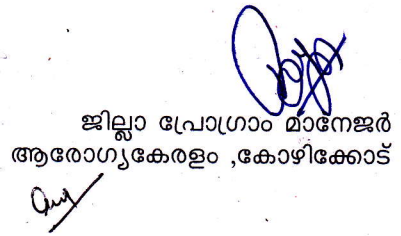 ജില്ലാ പ്രോഗ്രാം മാനേജർ
ആരോഗ്യകേരളം ,കോഴിക്കോട്